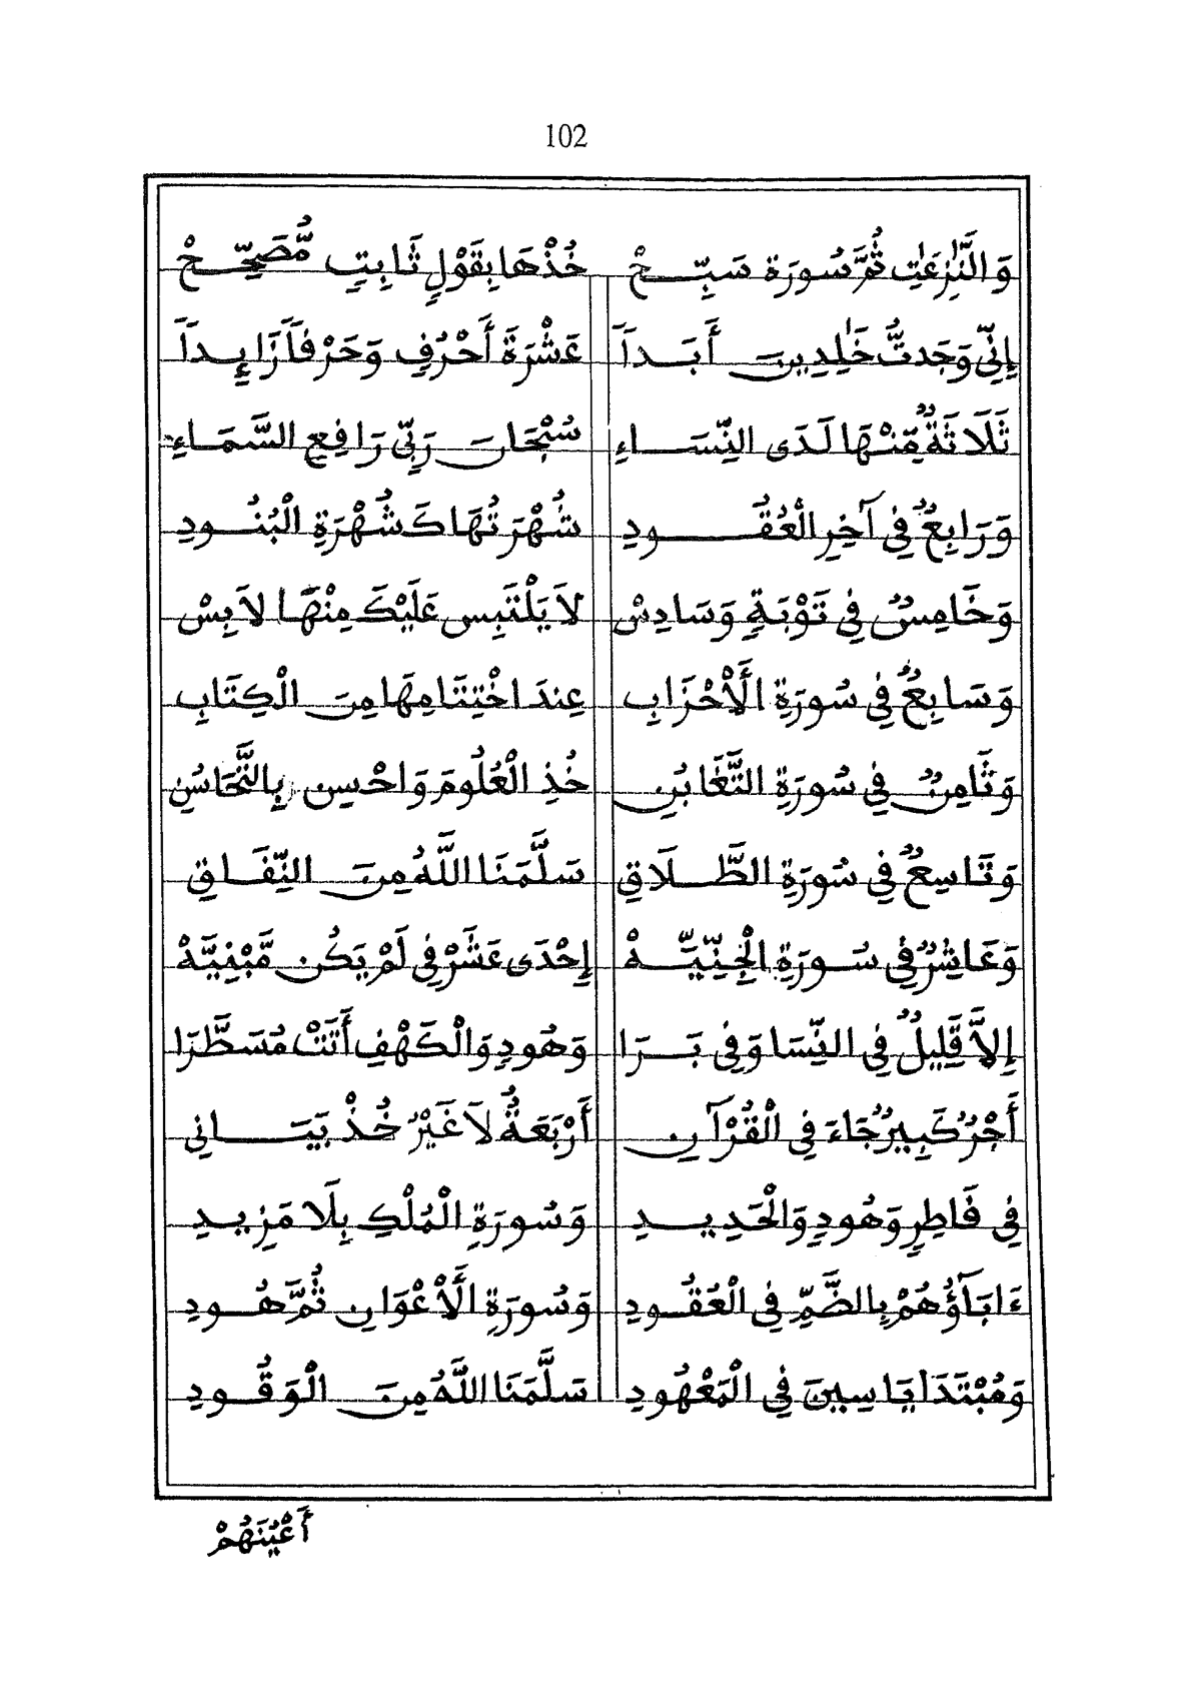 102
وَالنَّٰزِعَٰتِ ثُمَّ سُورَة سَبِّحْ خُذْهَا بِقَوْلٍ ثَابِتٍ مُّصَحِّحْ
إِنِّي وَجَدتُّ خَٰلِدِينَ أَبَداً عَشْرَةَ أَحْرُفٍ وَحَرْفاً زَايِداً
ثَلَاثَةٌ مِّنْهَا لَدَى النِّسَاءِ سُبْحَانَ رَبِّي رَافِعِ السَّمَاءِ
وَرَابِعٌ فِي آخِرِ الْعُقُودِ شُهْرَتُهَا كَشُهْرَةِ الْبُنُودِ
وَخَامِسٌ فِي تَوْبَةٍ وَسَادِسْ لَا يَلْتَبِس عَلَيْكَ مِنْهَا لَابِسْ
وَسَابِعٌ فِي سُورَةِ الْأَحْزَابِ عِندَ اخْتِتَامِهَا مِنَ الْكِتَابِ
وَثَامِنٌ فِي سُورَةِ التَّغَابُنِ خُذِ الْعُلُومَ وَاحْسِن بِالتَّحَاسُنِ
وَتَاسِعٌ فِي سُورَةِ الطَّلَاقِ سَلَّمَنَا اللَّهُ مِنَ النِّفَاقِ
وَعَاشِرٌ فِي سُورَةِ الْجِنِّيَّهْ إِحْدَى عَشَرْ فِي لَمْ يَكُن مَّبْنِيَّهْ
إِلَّا قَلِيلٌ فِي النِّسَا وَفِي بَرَا وَهُودٍ وَالْكَهْفِ أَتَتْ مُسَطَّرَا
أَجْرٌ كَبِيرٌ جَاءَ فِي الْقُرْآنِ أَرْبَعَةٌ لَا غَيْرُ خُذْ بَيَانِي
فِي فَاطِرٍ وَهُودٍ وَالْحَدِيدِ وَسُورَةِ الْمُلْكِ بِلَا مَزِيدِ
ءَابَآؤُهُمْ بِالضَّمِّ فِي الْعُقُودِ وَسُورَةِ الْأَعْوَانِ ثُمَّ هُودِ
وَمُبْتَدَا يَاسِينَ فِي الْمَعْهُودِ سَلَّمَنَا اللَّهُ مِنَ الْوَقُودِ
أَعْيُنَهُمْ